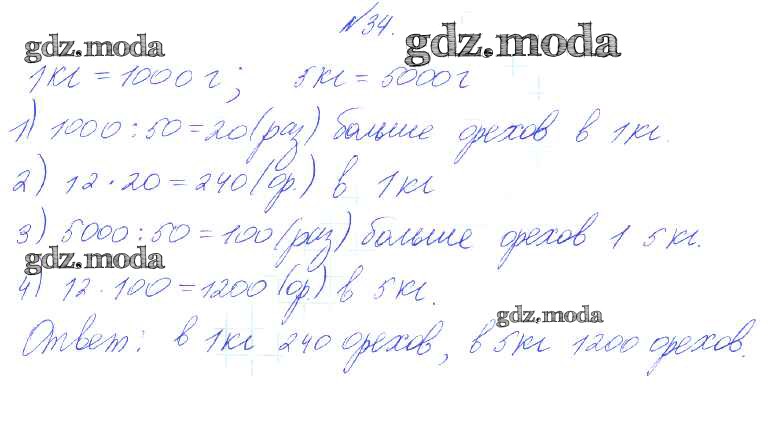 №34.
gdz.moda gdz.moda
1кг = 1000 г; 5кг = 5000г
1) 1000 : 50 = 20 (раз) больше орехов в 1кг.
2) 12 · 20 = 240 (ор.) в 1кг
3) 5000 : 50 = 100 (раз) больше орехов 1 5кг.
gdz.moda
4) 12 · 100 = 1200 (ор) в 5кг.
gdz.moda
Ответ: в 1кг 240 орехов, в 5кг 1200 орехов.